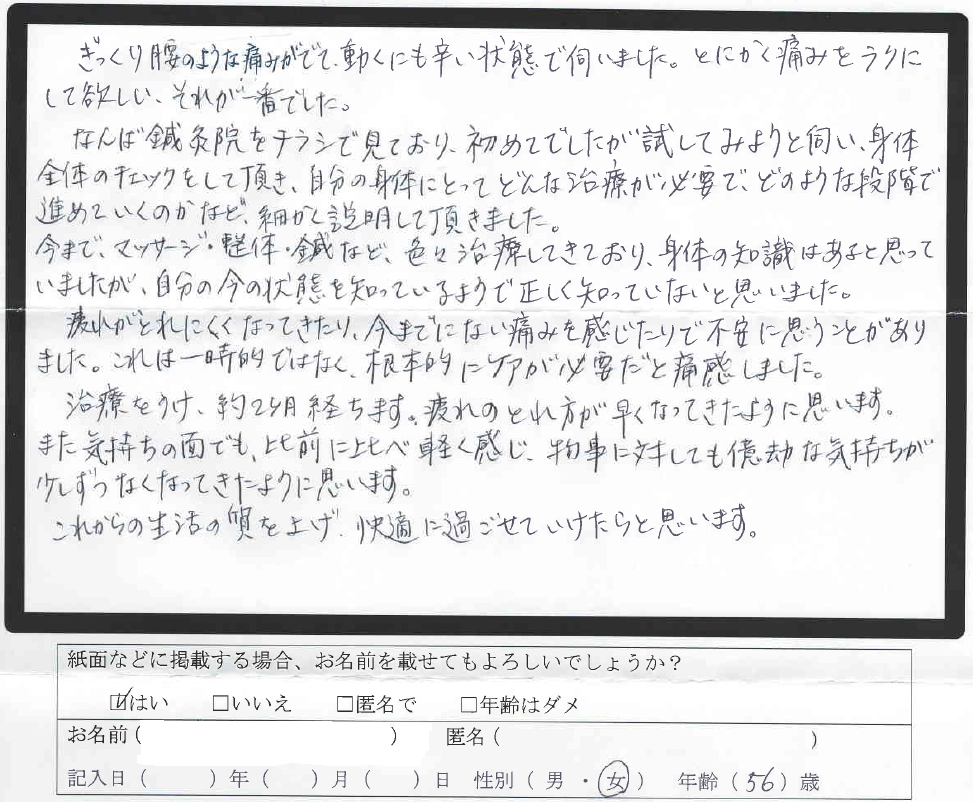 ぎっくり腰のような痛みがでて、動くにも辛い状態で伺いました。とにかく痛みをラクに
して欲しい、それが一番でした。
なんば鍼灸院をチラシで見ており、初めてでしたが試してみようと伺い、身体
全体のチェックをして頂き、自分の身体にとってどんな治療が必要で、どのような段階で
進めていくのかなど、細かく説明して頂きました。
今まで、マッサージ・整体・鍼など、色々治療してきており、身体の知識はあると思って
いましたが、自分の今の状態を知っているようで正しく知っていないと思いました。
疲れがとれにくくなってきたり、今までにない痛みを感じたりで不安に思うことがあり
ました。これは一時的ではなく、根本的にケアが必要だと痛感しました。
治療をうけ、約2ヶ月経ちます。疲れのとれ方が早くなってきたように思います。
また気持ちの面でも、比前に比べ軽く感じ、物事に対しても億劫な気持ちが
少しずつなくなってきたように思います。
これからの生活の質を上げ、快適に過ごせていけたらと思います。
紙面などに掲載する場合、お名前を載せてもよろしいでしょうか？
☑はい □いいえ □匿名で □年齢はダメ
お名前（ ） 匿名（ ）
記入日（ ）年（ ）月（ ）日 性別（ 男 ・ 女 ） 年齢（56）歳